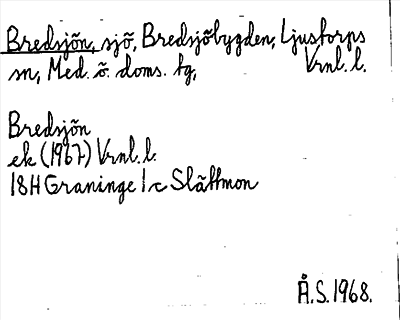 Bredsjön, sjö, Bredsjöbygden, Ljustorps
sn, Med. ö. doms. tg, Vrnl. l.
Bredsjön
ek (1967) Vrnl. l.
18H Graninge 1 c Slättmon
Å.S. 1968.